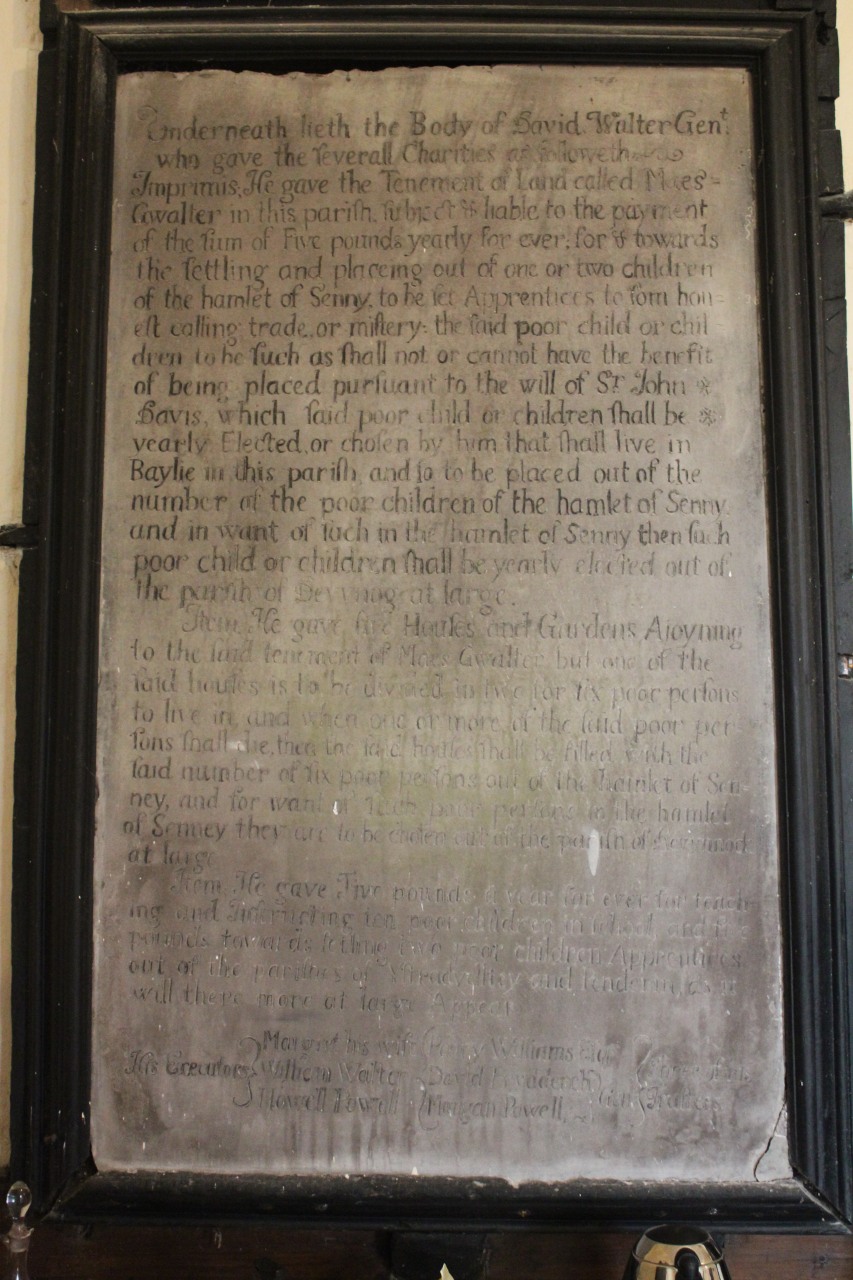 Underneath lieth the Body of David Walter Genᵗ.
who gave the ſeverall Charities as followeth
Imprimis, He gave the Tenement of Land called Maes=
Gwalter in this pariſh, ſubject & liable to the payment
of the ſum of Five pounds yearly for ever, for & towards
the ſettling and placeing out of one or two children
of the hamlet of Senny, to be ſet Apprentices to ſom hon=
eſt calling trade, or miſtery: the ſaid poor child or chil
dren to be ſuch as ſhall not or cannot have the benefit
of being placed purſuant to the will of Sᵗ John
Davis, which ſaid poor child or children ſhall be
yearly Elected, or choſen by him that ſhall live in
Baylie in this pariſh, and ſo to be placed out of the
number of the poor children of the hamlet of Senny
and in want of ſuch in the hamlet of Senny then ſuch
poor child or children ſhall be yearly elected out of
the pariſh of Devynnog at large.
Item, He gave five Houſes and Gardens Ajoyning
to the ſaid tenement of Maes Gwalter, but one of the
ſaid houſes is to be divided in two for ſix poor perſons
to live in, and when one or more of the ſaid poor per
ſons ſhall die, then the ſaid houſes ſhall be filled with the
ſaid number of ſix poor perſons out of the hamlet of Sen
ney, and for want of ſuch poor perſons in the hamlet
of Senney they are to be choſen out of the pariſh of
at large
Item, He gave Five pounds a year for ever for teach
ing and Inſtructing ten poor children in ſchool, and
pounds towards ſetling two poor children Apprentices
out of the pariſhes of and
will there more at large Appear
His Executors Margret his wife Williams
William Walter David
Howell Powell Morgan Powell,